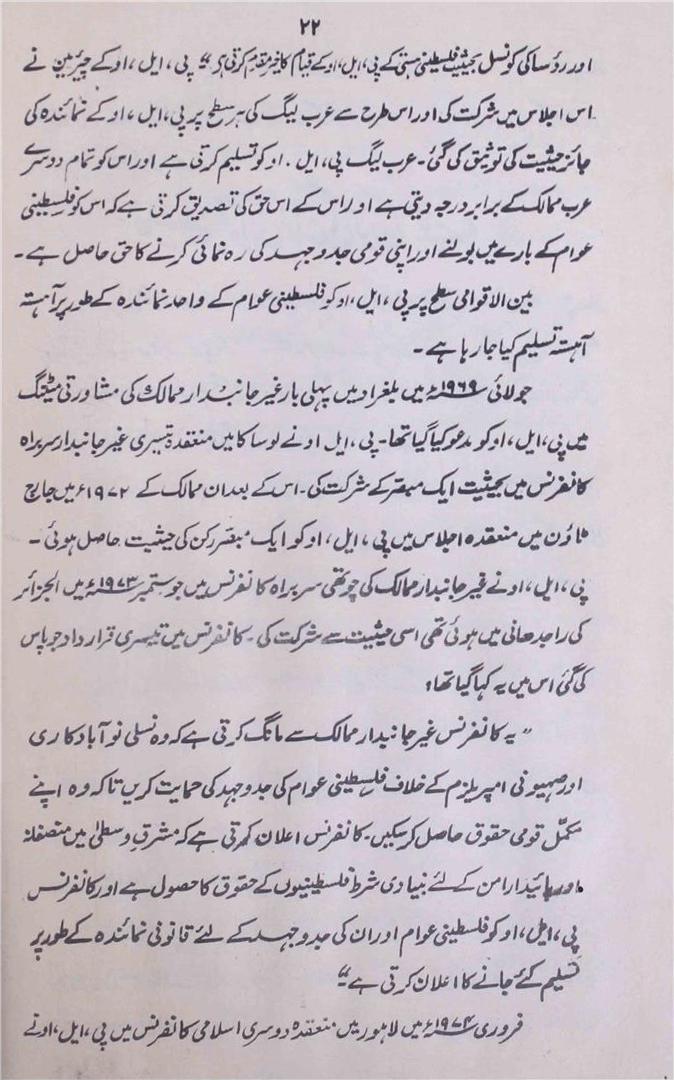 ۲۲
اور رؤسا کی کونسل بحیثیت فلسطینی ہستی کے پی، ایل، او کے قیام کا خیر مقدم کرتی ہے“ پی، ایل، او کے چیئرمین نے
اس اجلاس میں شرکت کی اور اس طرح سے عرب لیگ کی ہر سطح پر پی، ایل، او کے نمائندہ کی
جائز حیثیت کی توثیق کی گئی۔ عرب لیگ پی، ایل، او کو تسلیم کرتی ہے اور اس کو تمام دوسرے
عرب ممالک کے برابر درجہ دیتی ہے اور اس کے اس حق کی تصدیق کرتی ہے کہ اس کو فلسطینی
عوام کے بارے میں بولنے اور اپنی قومی جدوجہد کی رہ نمائی کرنے کا حق حاصل ہے۔
بین الاقوامی سطح پر پی، ایل، او کو فلسطینی عوام کے واحد نمائندہ کے طور پر آہستہ
آہستہ تسلیم کیا جا رہا ہے۔
جولائی ۱۹۶۹ء میں بلغراد میں پہلی بار غیر جانبدار ممالک کی مشاورتی میٹنگ
میں پی، ایل، او کو مدعو کیا گیا تھا۔ پی، ایل او نے لوساکا میں منعقدہ تیسری غیر جانبدار سربراہ
کانفرنس میں بحیثیت ایک مبصر کے شرکت کی۔ اس کے بعد ان ممالک کے ۱۹۷۲ء میں جارج
ٹاؤن میں منعقدہ اجلاس میں پی، ایل، او کو ایک مبصر رکن کی حیثیت حاصل ہوئی۔
پی، ایل، او نے غیر جانبدار ممالک کی چوتھی سربراہ کانفرنس میں جو ستمبر ۱۹۷۳ء میں الجزائر
کی راجدھانی میں ہوئی تھی اسی حیثیت سے شرکت کی۔ کانفرنس میں تیسری قرارداد جو پاس
کی گئی اس میں یہ کہا گیا تھا:
”یہ کانفرنس غیر جانبدار ممالک سے مانگ کرتی ہے کہ وہ نسلی نوآبادکاری
اور صہیونی امپریلزم کے خلاف فلسطینی عوام کی جدوجہد کی حمایت کریں تاکہ وہ اپنے
مکمل قومی حقوق حاصل کر سکیں۔ کانفرنس اعلان کرتی ہے کہ مشرق وسطیٰ میں منصفانہ
اور پائیدار امن کے لئے بنیادی شرط فلسطینیوں کے حقوق کا حصول ہے اور کانفرنس
پی، ایل، او کو فلسطینی عوام اور ان کی جدوجہد کے لئے قانونی نمائندہ کے طور پر
تسلیم کئے جانے کا اعلان کرتی ہے“
فروری ۱۹۷۴ء میں لاہور میں منعقدہ دوسری اسلامی کانفرنس میں پی، ایل، او نے